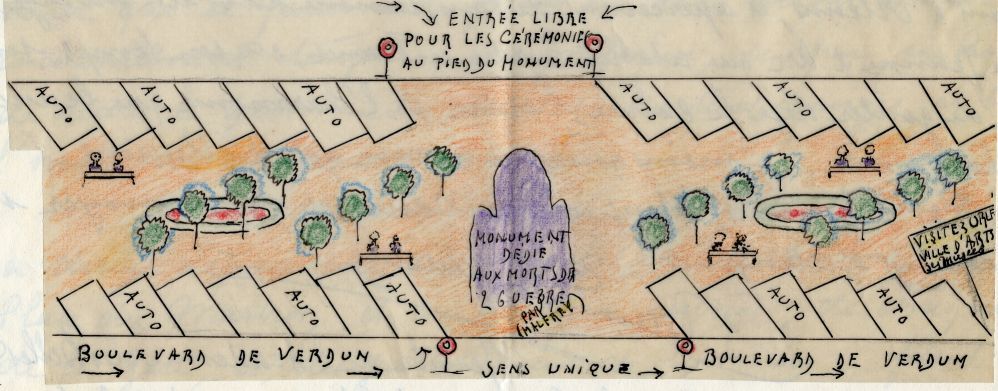 ENTRÉE LIBRE
POUR LES CÉRÉMONIES
AU PIED DU MONUMENT
AUTO
AUTO
AUTO
AUTO
AUTO
AUTO
MONUMENT
DÉDIÉ
AUX MORTS DE
2 GUERRE
PAR
VISITEZ
VILLE D'ARTS
AUTO
AUTO
AUTO
AUTO
AUTO
BOULEVARD DE VERDUN
SENS UNIQUE
BOULEVARD DE VERDUM